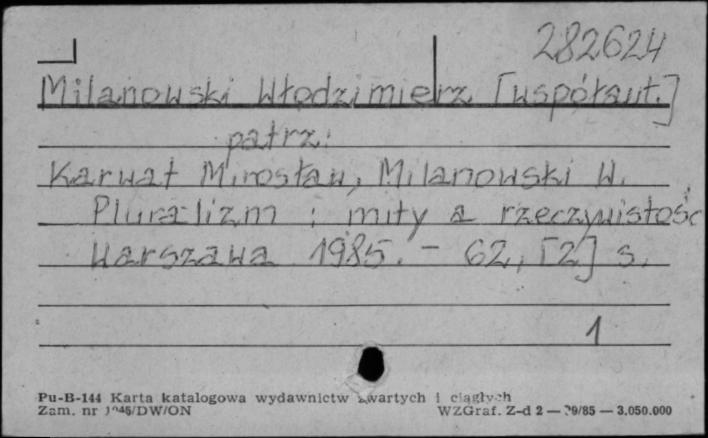 282624
Milanowski Włodzimierz [współaut.]
patrz:
Karwat Mirosław, Milanowski W.
Pluralizm : mity a rzeczywistość
Warszawa 1985. - 62, [2] s.
1
Pu-B-144 Karta katalogowa wydawnictw zwartych i ciągłych
Zam. nr WZGraf. Z-d 2 — 3.050.000